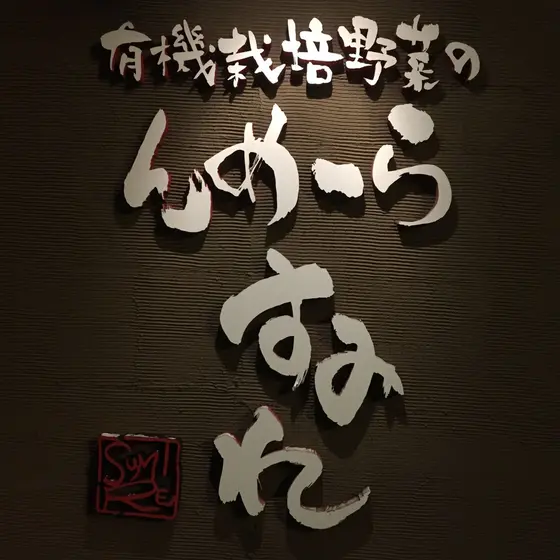 有機栽培野菜の
らーめん
すみれ
SUMI
RE